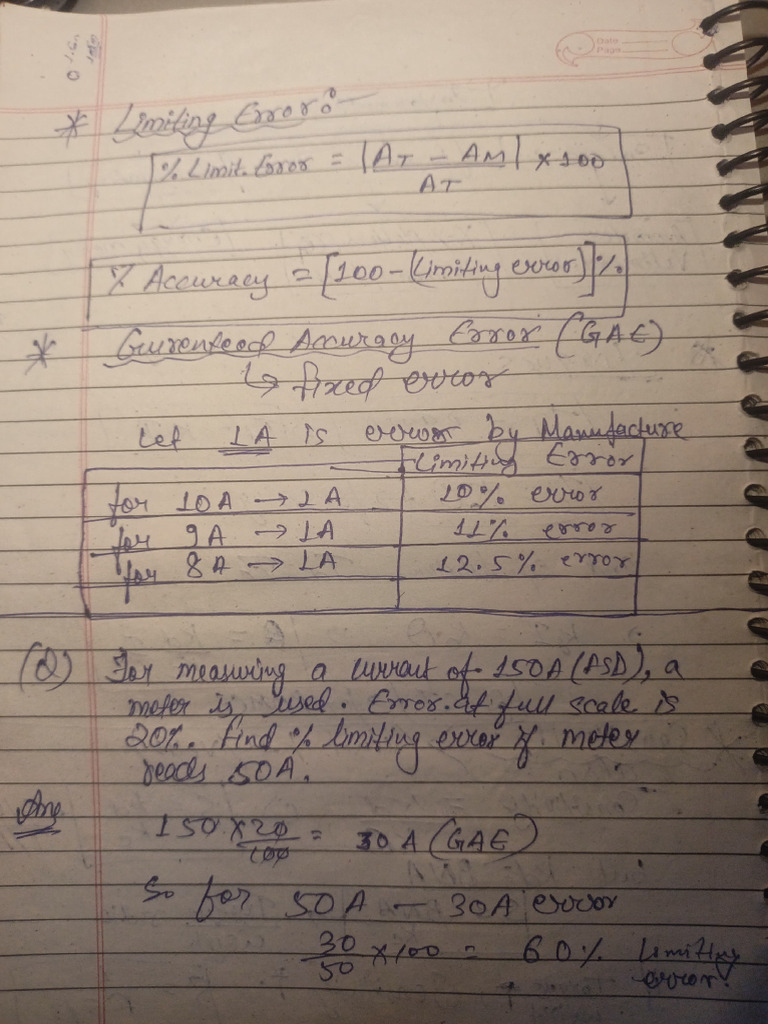 Date
Page
* Limiting Error :-
% Limit. Error = |AT - AM| × 100
AT
% Accuracy = [100 - (Limiting error)] %
* Gurenteed Accuracy Error (GAE)
↳ fixed error
Let 1A is error by Manufacture
Limiting Error
for 10A → 1A 10% error
for 9A → 1A 11% error
for 8A → 1A 12.5% error
(Q) For measuring a current of 150A (), a
meter is used. Error at full scale is
20%. find % limiting error if meter
reads 50A.
Ans
150 × 20 = 30 A (GAE)
100
So for 50A - 30A error
30 × 100 = 60% Limiting
50 error.